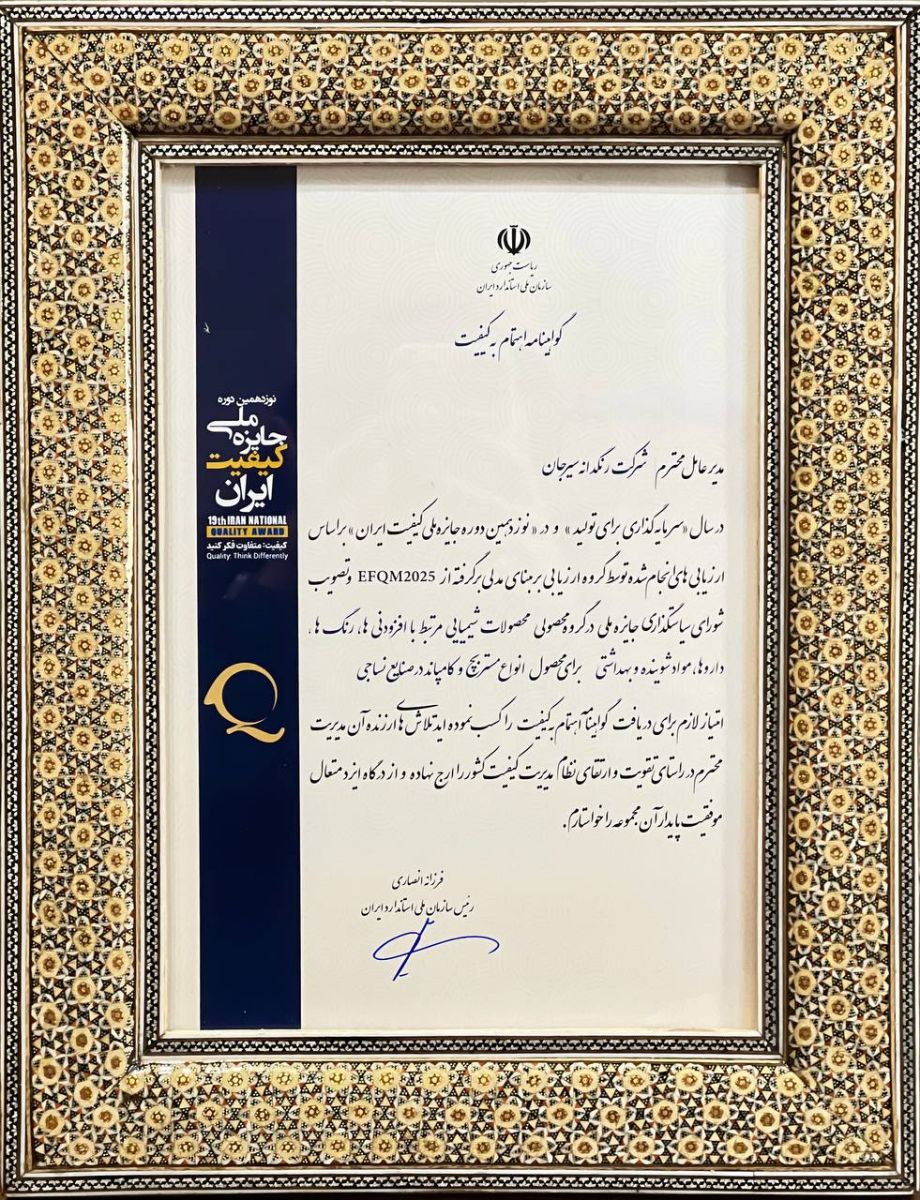 ریاست جمهوری
سازمان ملی استاندارد ایران
گواهینامه اهتمام به کیفیت
نوزدهمین دوره
جایزه ملی
کیفیت
ایران
19th IRAN NATIONAL
QUALITY AWARD
کیفیت: متفاوت فکر کنید
Quality: Think Differently
مدیر عامل محترم شرکت رنگدانه سیرجان
در سال «سرمایه گذاری برای تولید» و در «نوزدهمین دوره جایزه ملی کیفیت ایران» براساس
ارزیابی های انجام شده توسط گروه ارزیابی بر مبنای مدلی برگرفته از EFQM2025 و تصویب
شورای سیاستگذاری جایزه ملی در گروه محصولی محصولات شیمیایی مرتبط با افزودنی ها، رنگ ها،
داروها، مواد شوینده و بهداشتی برای محصول انواع مستربچ و کامپاند در صنایع نساجی
امتیاز لازم برای دریافت گواهینامه اهتمام به کیفیت را کسب نموده اید تلاش های ارزنده آن مدیریت
محترم در راستای تقویت و ارتقای نظام مدیریت کیفیت کشور را ارج نهاده و از درگاه ایزد متعال
موفقیت پایدار آن مجموعه را خواستارم.
فرزانه انصاری
رئیس سازمان ملی استاندارد ایران